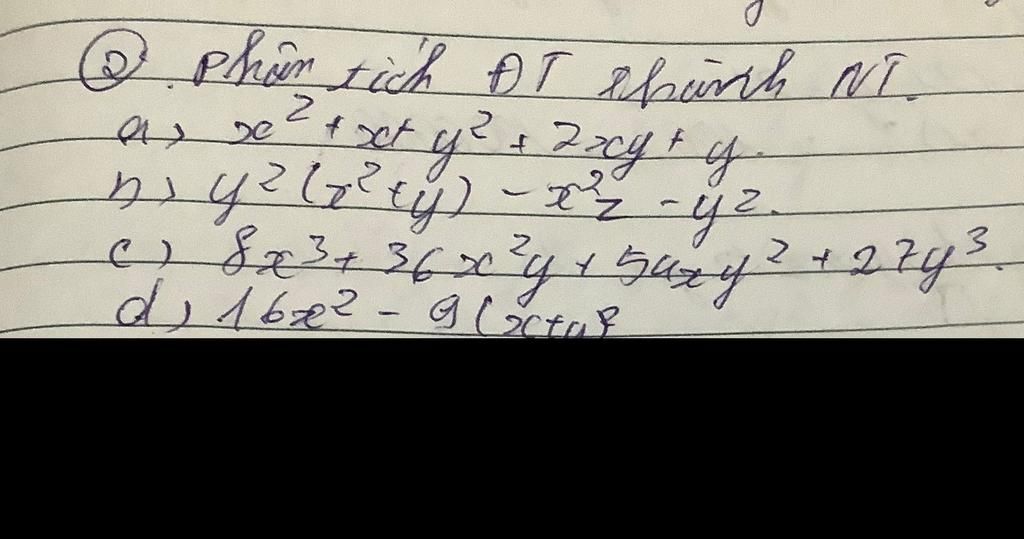 ② Phân tích ĐT thành NT.
a) x² + x + y² + 2xy + y.
b) y²(x² + y) - x²z - yz.
c) 8x³ + 36x²y + 54xy² + 27y³.
d) 16x² - 9(x+y)²